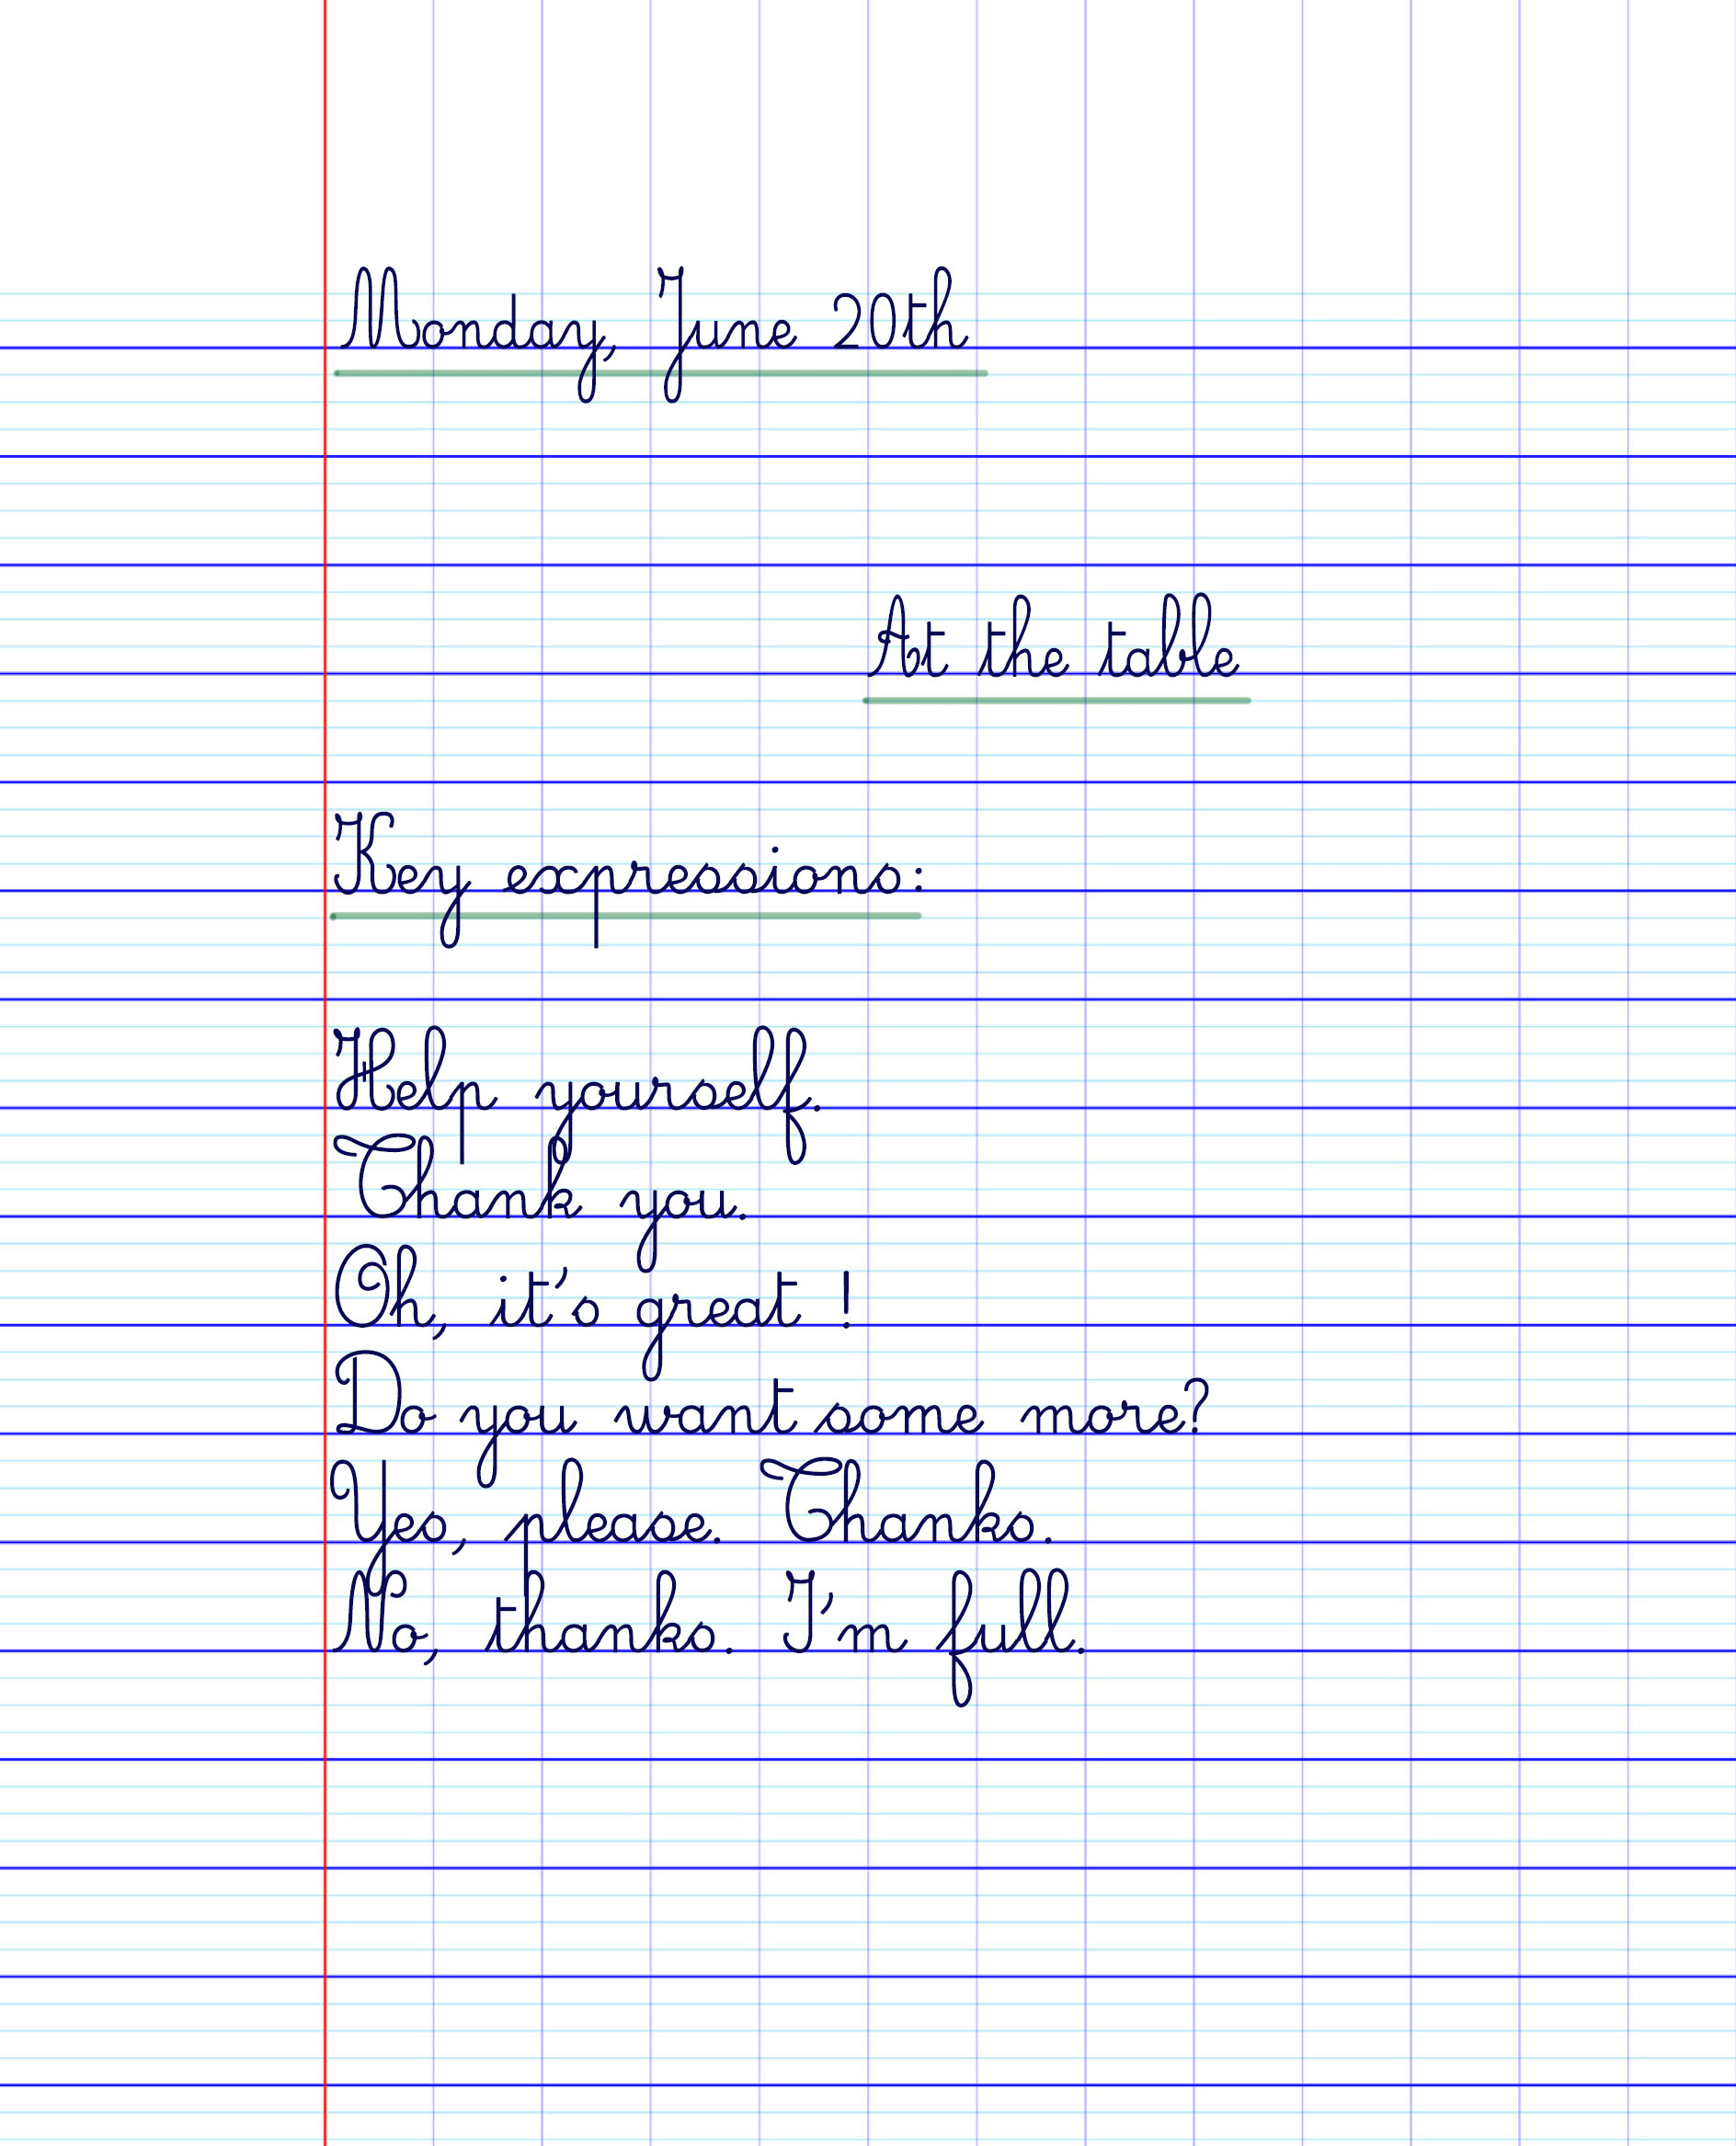 Monday, June 20th
At the table
Key expressions:
Help yourself.
Thank you.
Oh, it's great !
Do you want some more?
Yes, please. Thanks.
No, thanks. I'm full.